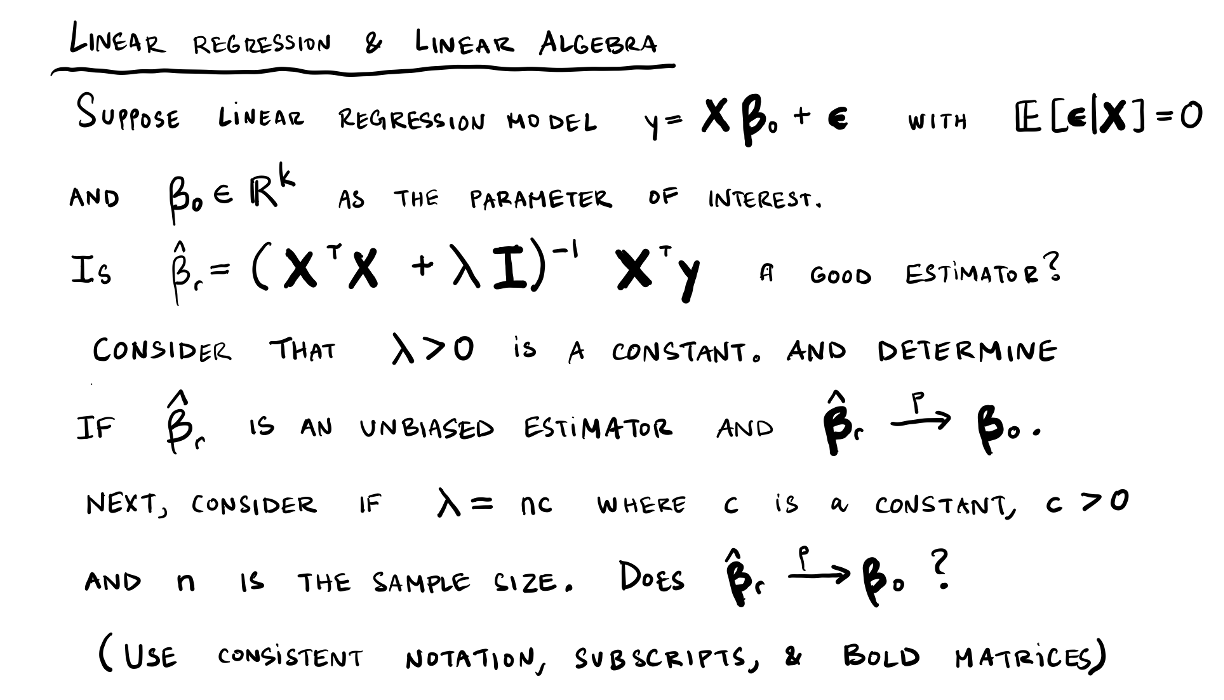 LINEAR REGRESSION & LINEAR ALGEBRA
SUPPOSE LINEAR REGRESSION MODEL y = 𝐗β₀ + ϵ WITH 𝔼[ϵ|𝐗] = 0
AND β₀ ∈ ℝᵏ AS THE PARAMETER OF INTEREST.
IS β̂ᵣ = (𝐗ᵀ𝐗 + λ𝐈)⁻¹ 𝐗ᵀy A GOOD ESTIMATOR?
CONSIDER THAT λ > 0 IS A CONSTANT. AND DETERMINE
IF β̂ᵣ IS AN UNBIASED ESTIMATOR AND β̂ᵣ →ᵖ β₀.
NEXT, CONSIDER IF λ = nc WHERE c IS A CONSTANT, c > 0
AND n IS THE SAMPLE SIZE. DOES β̂ᵣ →ᵖ β₀ ?
(USE CONSISTENT NOTATION, SUBSCRIPTS, & BOLD MATRICES)